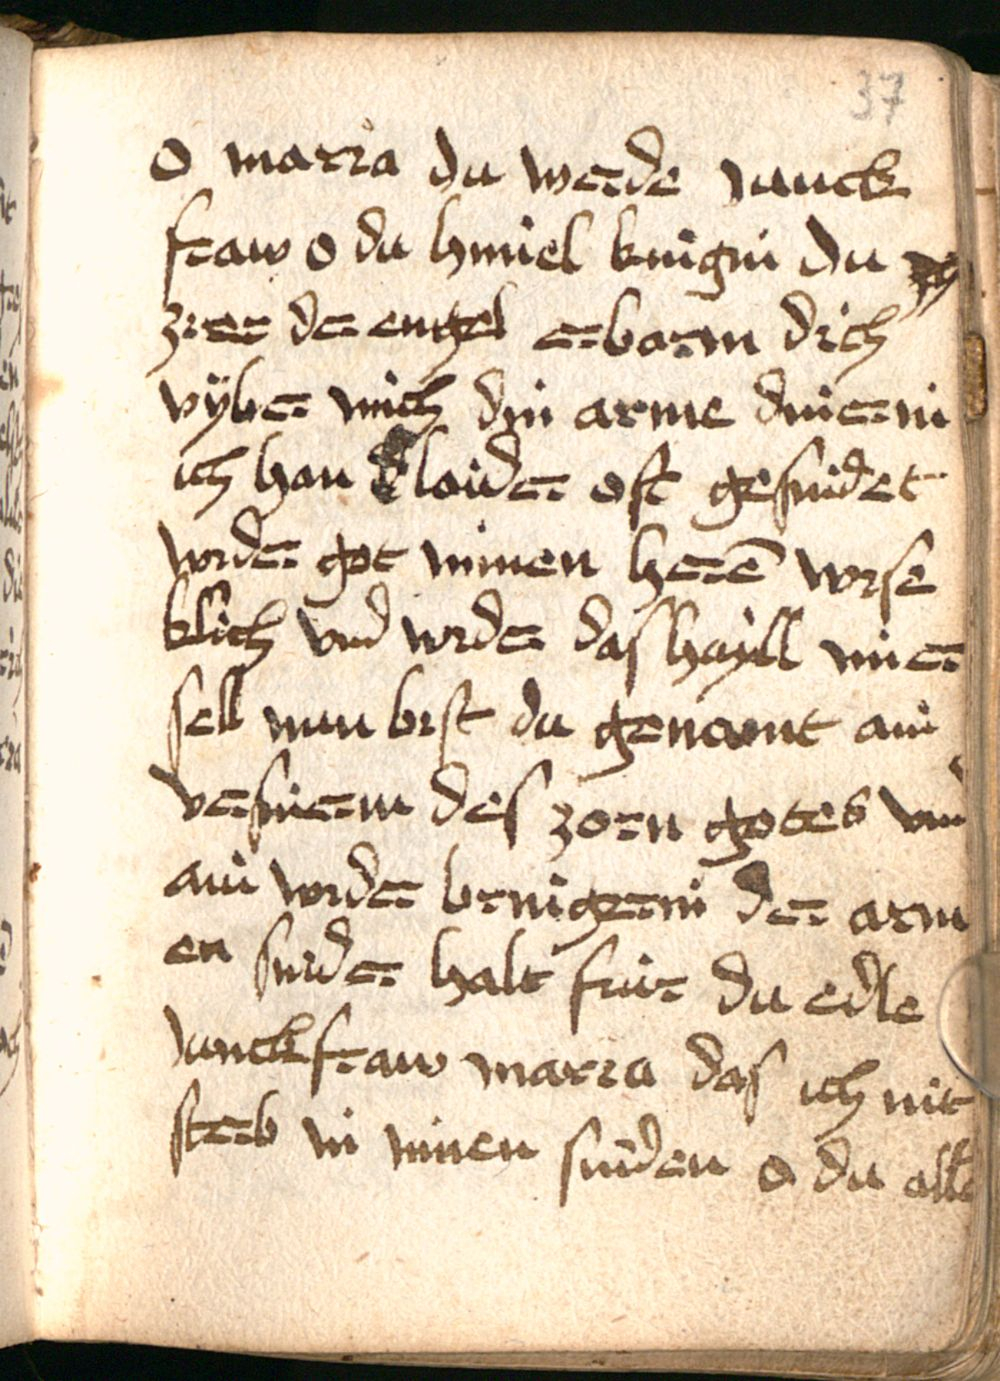 37
O maria du werde junck
fraw o du himel kunigin du
zier der engel erbarm dich
vÿber mich din arme dinerin
ich han laider oft gesundet
wider got minen heren
klich vnd wider das hayll miner
sell nun bist du genant ain
versuenerin des zorn gotes vnd
ain wider bringerin der arm
en sunder halt fur du edle
junckfraw maria das ich nit
sterb in minen sunden o du aller